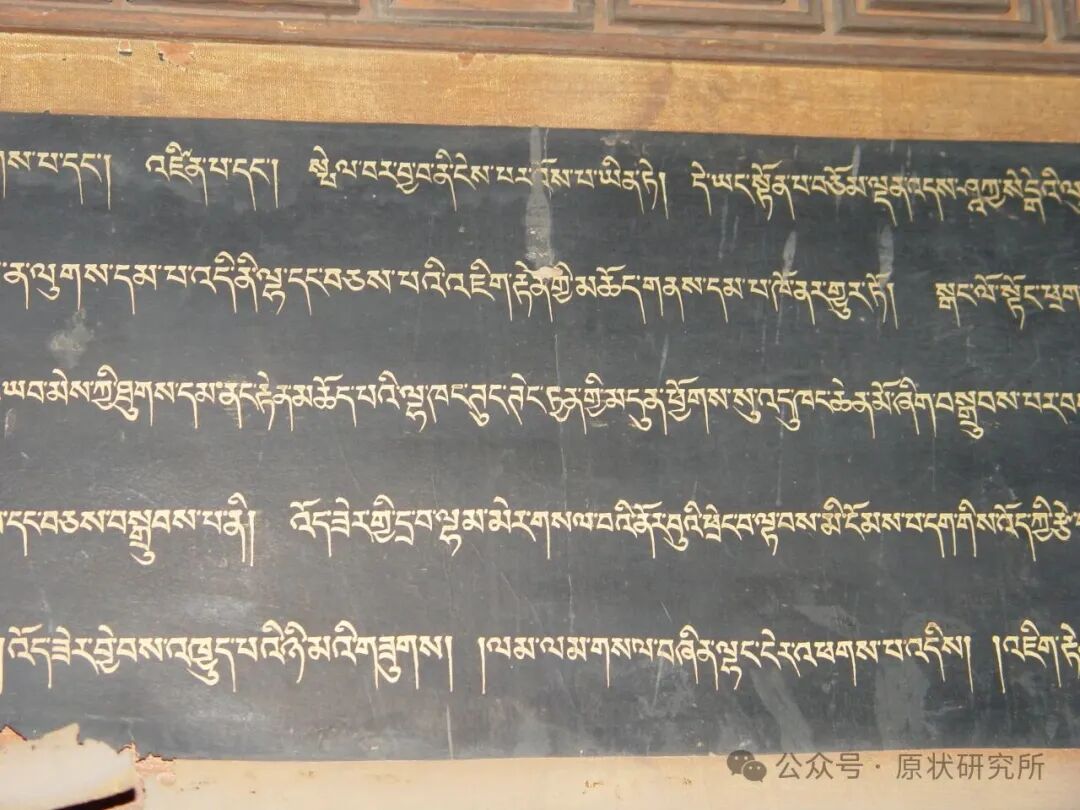 གས་པ་དང་། འཛིན་པ་དང་། སྤེལ་བར་བྱ་བ་ནི་ངེས་པར་འོས་པ་ཡིན་ཏེ། དེ་ཡང་སྟོན་པ་བཅོམ་ལྡན་འདས་ཤཱཀྱ་སེངྒེའི་
ན་ལུགས་དམ་པ་འདི་ནི་ལྷ་དང་བཅས་པའི་འཇིག་རྟེན་གྱི་མཆོད་གནས་དམ་པ་ཁོ་ནར་གྱུར་ཏོ། སྒང་ལོ་སྟོང་ཕྲག
ཡབ་མེས་ཀྱི་ཐུགས་དམ་ནང་རྟེན་མཆོད་པའི་ལྷ་ཁང་ཟུང་ཤིང་ཏྲན་གྱི་མདུན་ཕྱོགས་སུ་འདུ་ཁང་ཆེན་མོ་ཞིག་བསྒྲུབས་པར་
དང་བཅས་བསྒྲུབས་པ་ནི། འོད་ཟེར་གྱི་དྲ་བ་ལྷམ་མེར་གསལ་བའི་ནོར་བུའི་ཕྲེང་བ་ལྟ་བས་མི་ངོམས་པ་དག་གིས་འོད་ཀྱི་རྩེ་
འོད་ཟེར་བྱེ་བས་འཁྱུད་པའི་ཉི་མའི་གཟུགས། །ལམ་ལམ་གསལ་བཞིན་ལྷང་ངེར་འཕགས་པ་འདིས། །འཇིག་རྟེ
公众号 · 原状研究所